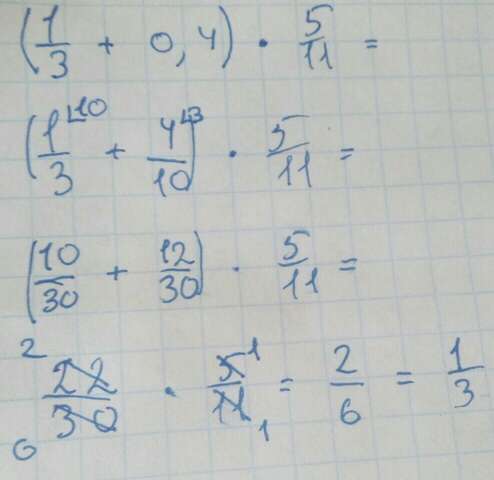 (1/3 + 0,4) · 5/11 =
(1/3 ⌞10 + 4/10 ⌞3) · 5/11 =
(10/30 + 12/30) · 5/11 =
2 22/30 6 · 5/11 1 1 = 2/6 = 1/3